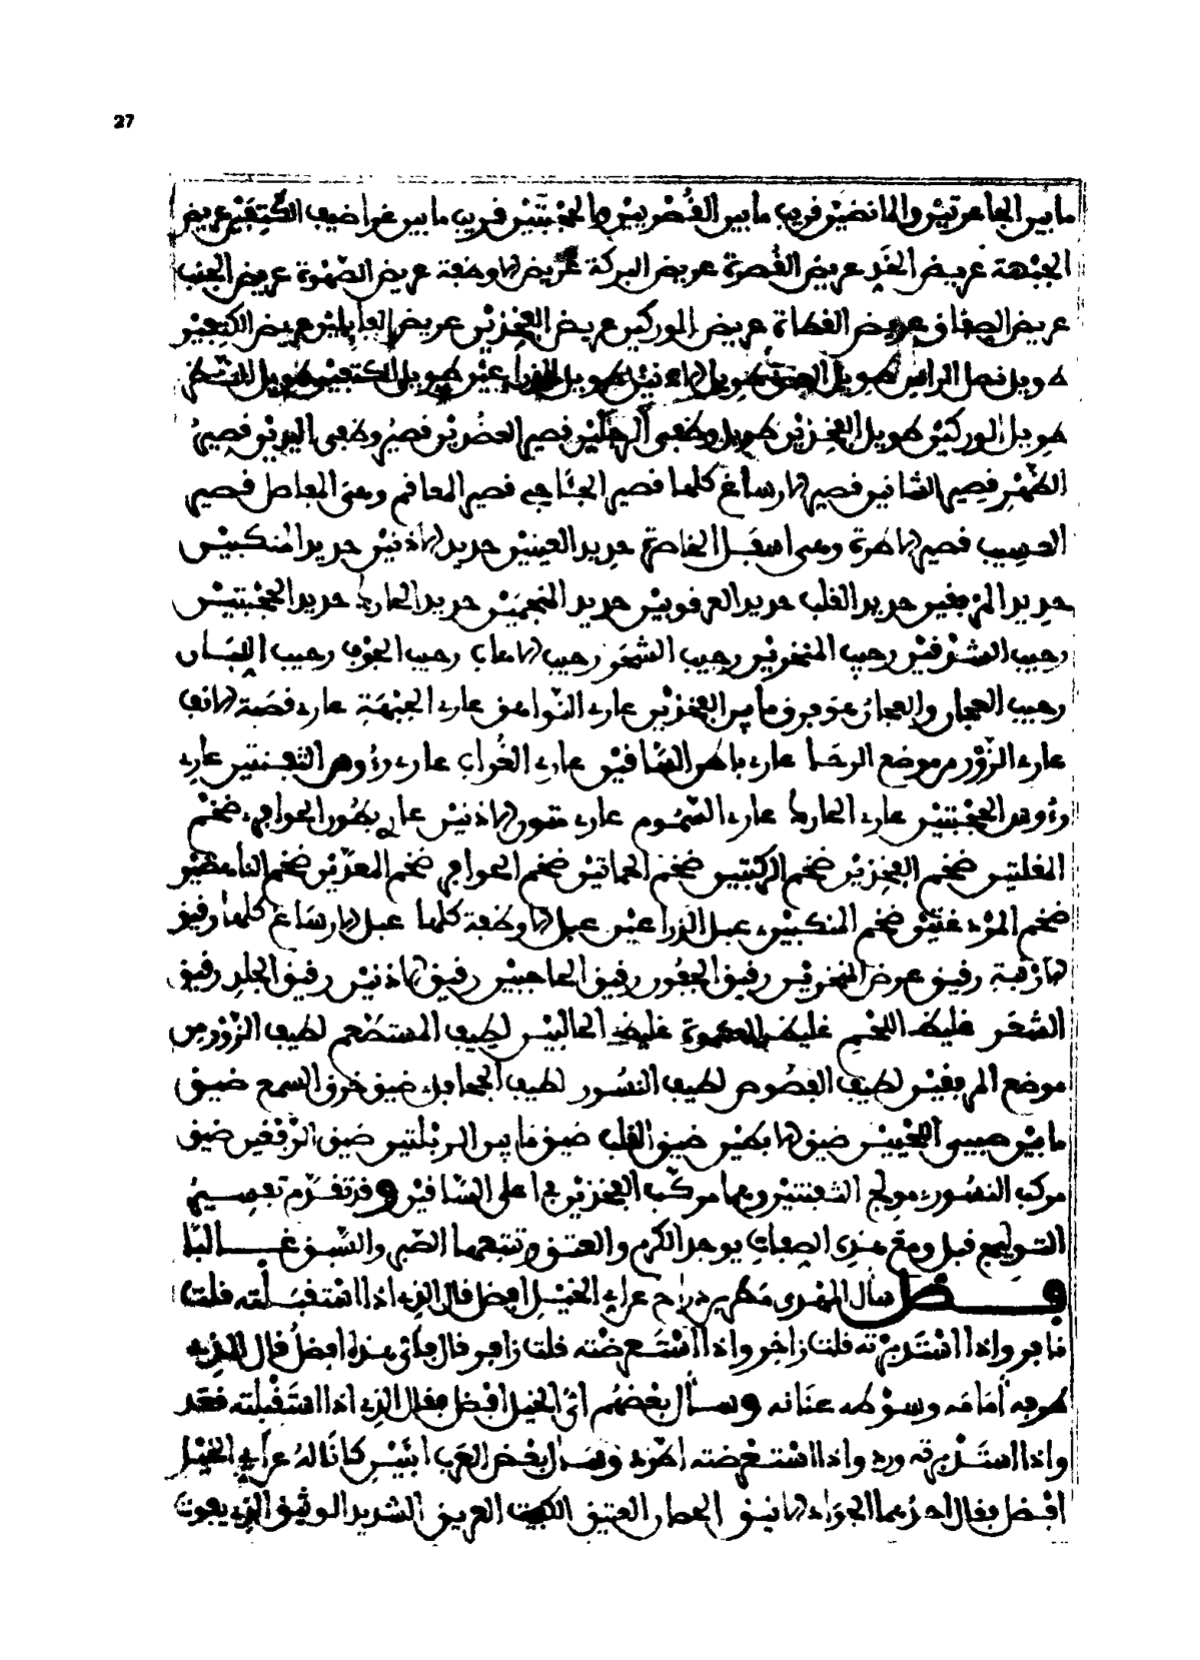 27
ما بين الجاعرتين والمانضين قريب ما بين القصريين والحجبتين قريب ما بين غراضيف الكتفين عريض
الجبهة عريض الخد عريض القصرة عريض البركة عريض الاوظفة عريض الصهوة عريض الجنب
عريض الصفاق عريض القطاة عريض الوركين عريض الفخذين عريض الكتفين
طويل نصل الراس طويل العنق طويل الاذنين طويل الذراعين طويل الكتفين طويل البطن
طويل الوركين طويل الفخذين طويل وظفى الرجلين قصير العضدين قصير وظفى اليدين قصير
الظهر قصير الساقين قصير الارساغ كلها قصير الجناجن قصير المعاقم وهى المفاصل قصير
العسيب قصير الاطرة وهى اسفل الخاصرة حديد العينين حديد الاذنين حديد المنكبين
حديد المرفقين حديد القلب حديد العرقوبين حديد المنجمين حديد الحارك حديد الحجبتين
رحيب الشدقين رحيب المنخرين رحيب الشجر رحيب الاهاب رحيب الجوف رحيب اللبان
رحيب العجان والعجان هو فرق ما بين الفخذين عارى النواهق عارى الجبهة عارى قصبة الانف
عارى الزور من موضع الرحا عارى باطن الساقين عارى الغراب عارى رؤوس الثفنتين عارى
رؤوس الحجبتين عارى الحارك عارى السموم عارى متون الاذنين عارى بطون الحوافر ضخم
المقلتين ضخم الفخذين ضخم الركبتين ضخم الحماتين ضخم الحوافر ضخم المعدين ضخم الناهضين
ضخم المردغتين ضخم المنكبين عبل الذراعين عبل الاوظفة كلها عبل الارساغ كلها رقيق
الارنبة رقيق عرض المنخرين رقيق الجفون رقيق الحاجبين رقيق الاذنين رقيق الجلد رقيق
الشعر غليظ اللحم غليظ العكوة غليظ الحالبين لطيف المستطعم لطيف الزور من
موضع المرفقين لطيف الفصوص لطيف النسور لطيف الجحافل ضيق خرق السمع ضيق
ما بين صبيى اللحيين ضيق الابطين ضيق القلب ضيق ما بين الربلتين ضيق الرفغين ضيق
مركب النسور مولج الشعبتين وهما مركب الفخذين فى اعلى الساقين وقد تقدم تفسير
التوليج قبل ومع هذه الصفات يوجد الكرم والعتق وتتبعهما الصبر والسبق غالبا
فصل سأل المهدى مطر بن دراج عن اى الخيل افضل قال الذى اذا استقبلته قلت
نافر واذا استدبرته قلت زاخر واذا استعرضته قلت زافر قال فأى هذه افضل قال الذى
طرفه أمامه وسوطه عنانه وسأل بعضهم أى الخيل افضل فقال الذى اذا استقبلته فقد
واذا استدبرته ورد واذا استعرضته اطرد وسأل بعض العرب ابنين كانا له عن اى الخيل
افضل فقال احدهما الجواد الانيق الحصان العتيق الكميت العريق الشديد الوثيق الذى يفوت